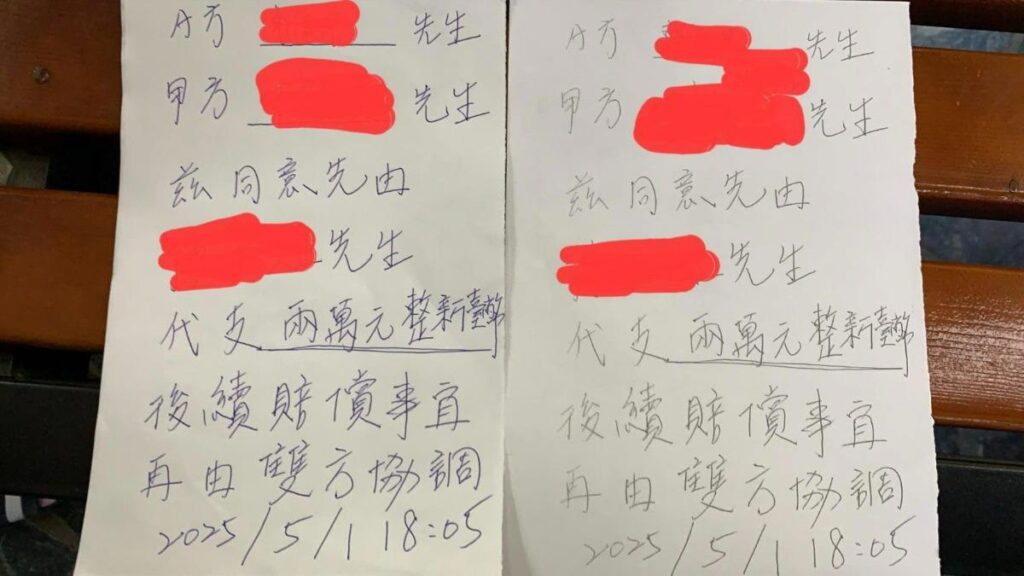 A方 先生
甲方 先生
茲同意、先由
先生
代支 兩萬元整新臺幣
後續賠償事宜
再由雙方協調
2025/5/1 18:05
A方 先生
甲方 先生
茲同意、先由
先生
代支 兩萬元整新臺幣
後續賠償事宜
再由雙方協調
2025/5/1 18:05